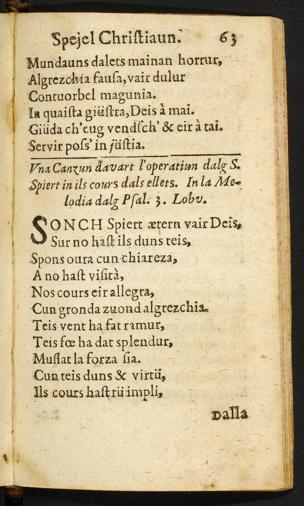 Spejel Chriſtiaun. 63
Mundauns dalets mainan horrur,
Algrezchia fauſa, vair dulur
Contuorbel magunia.
In quaiſta giüſtra, Deis à mai.
Giüda ch'eug vendſch' & eir à tai.
Servir poſs' in jüſtia.
Vna Canzun davart l'operatiun dalg S.
Spiert in ils cours dals ellets. In la Me-
lodia dalg Pſal. 3. Lobv.
SONCH Spiert ætern vair Deis,
Sur no haſt ils duns teis,
Spons oura cun chiareza,
A no haſt viſità,
Nos cours eir allegra,
Cun gronda zuond algrezchia.
Teis vent ha fat ramur,
Teis fœ ha dat splendur,
Muſſat la forza ſia.
Cun teis duns & virtü,
Ils cours haſt rü impli,
Dalla